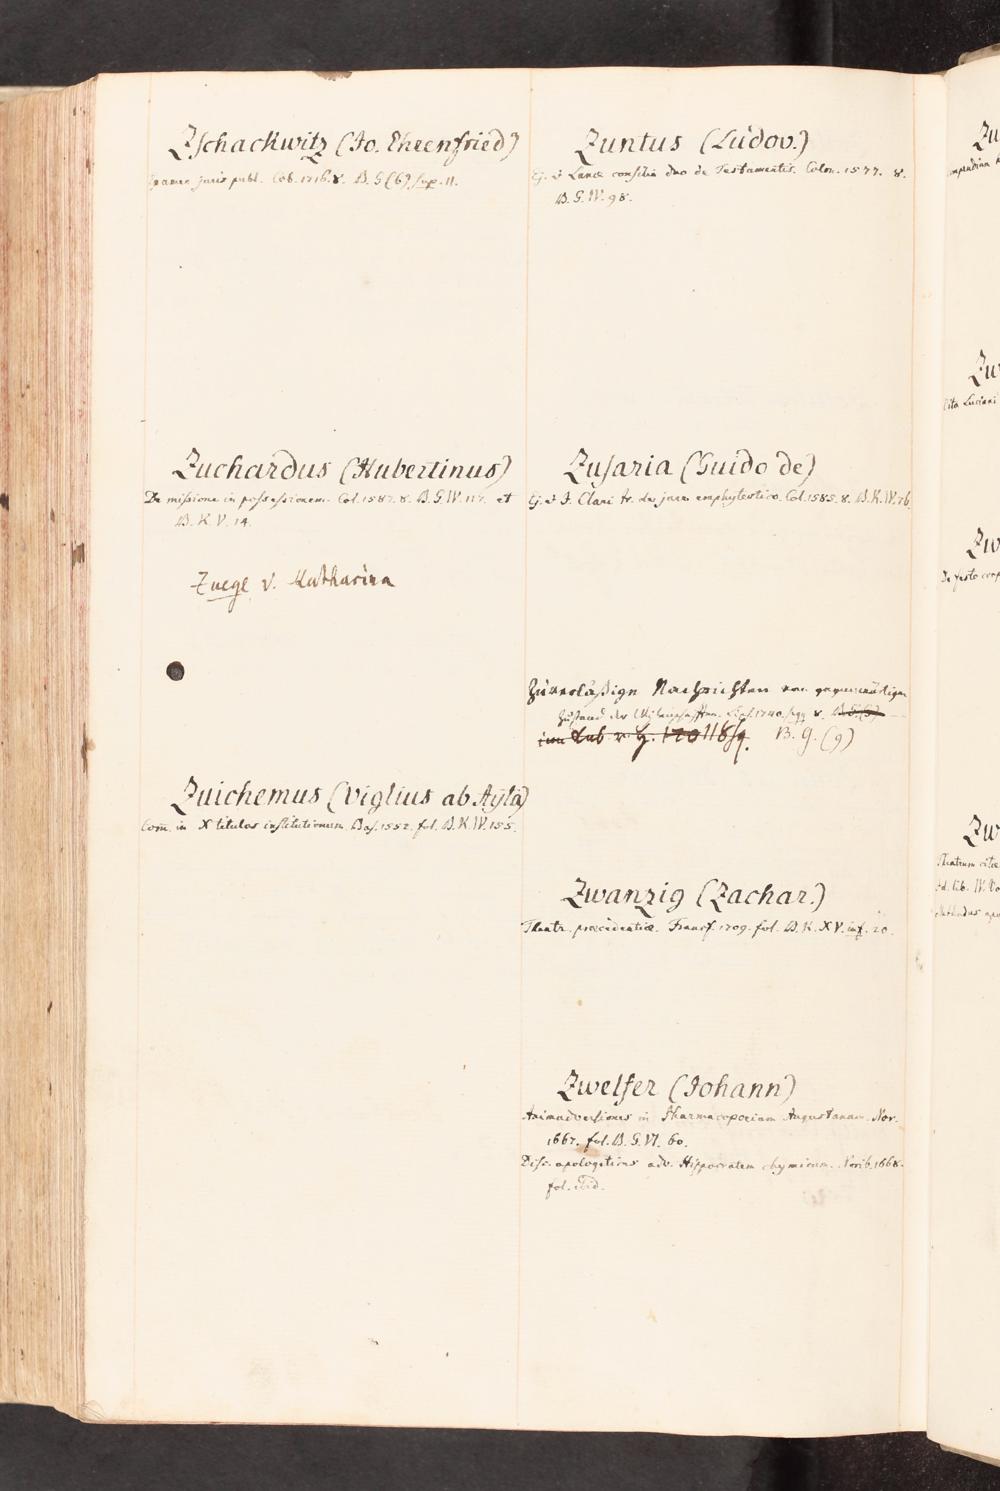 Zschackwitz (Jo. Ehrenfried)
Examen juris publ. Cob. 1716. 8. B. G (6) sup. 11.
Zuchardus (Hubertinus)
De missione in possessionem. Col. 1587. 8. B. G. W. 117. et
B. K. V. 14.
Zuege v. Katharina
Zuichemus (Viglius ab Aylà)
Com. in X titulos institutionum. Bas. 1552. fol. B. K. W. 155.
Zuntus (Ludov.)
Ej. & Lancæ consilia duo de Testamentis. Colon. 1577. 8.
B. G. W. 98.
Zusaria (Guido de)
Ej. & J. Clari tr. de jure emphyteutico. Col. 1585. 8. B. K. W. 76.
Zuverläßige Nachrichten von gegenwärtigen
Zustand der Wissenschafften. Lips. 1740. sqq 8.
B. G. (9)
Zwanzig (Zachar.)
Theatr. præcedentiæ. Francf. 1709. fol. B. K. XV. inf. 20.
Zwelfer (Johann)
Animadversiones in Pharmacopoeiam Augustanam. Nor.
1667. fol. B. G. VI. 60.
Diss. apologetica adv. Hippocratem chymicum. Norib. 1668.
fol. ibid.
Zu
Zu
Vita Luciani
Zw
De festo corp
Zw
Theatrum vitæ